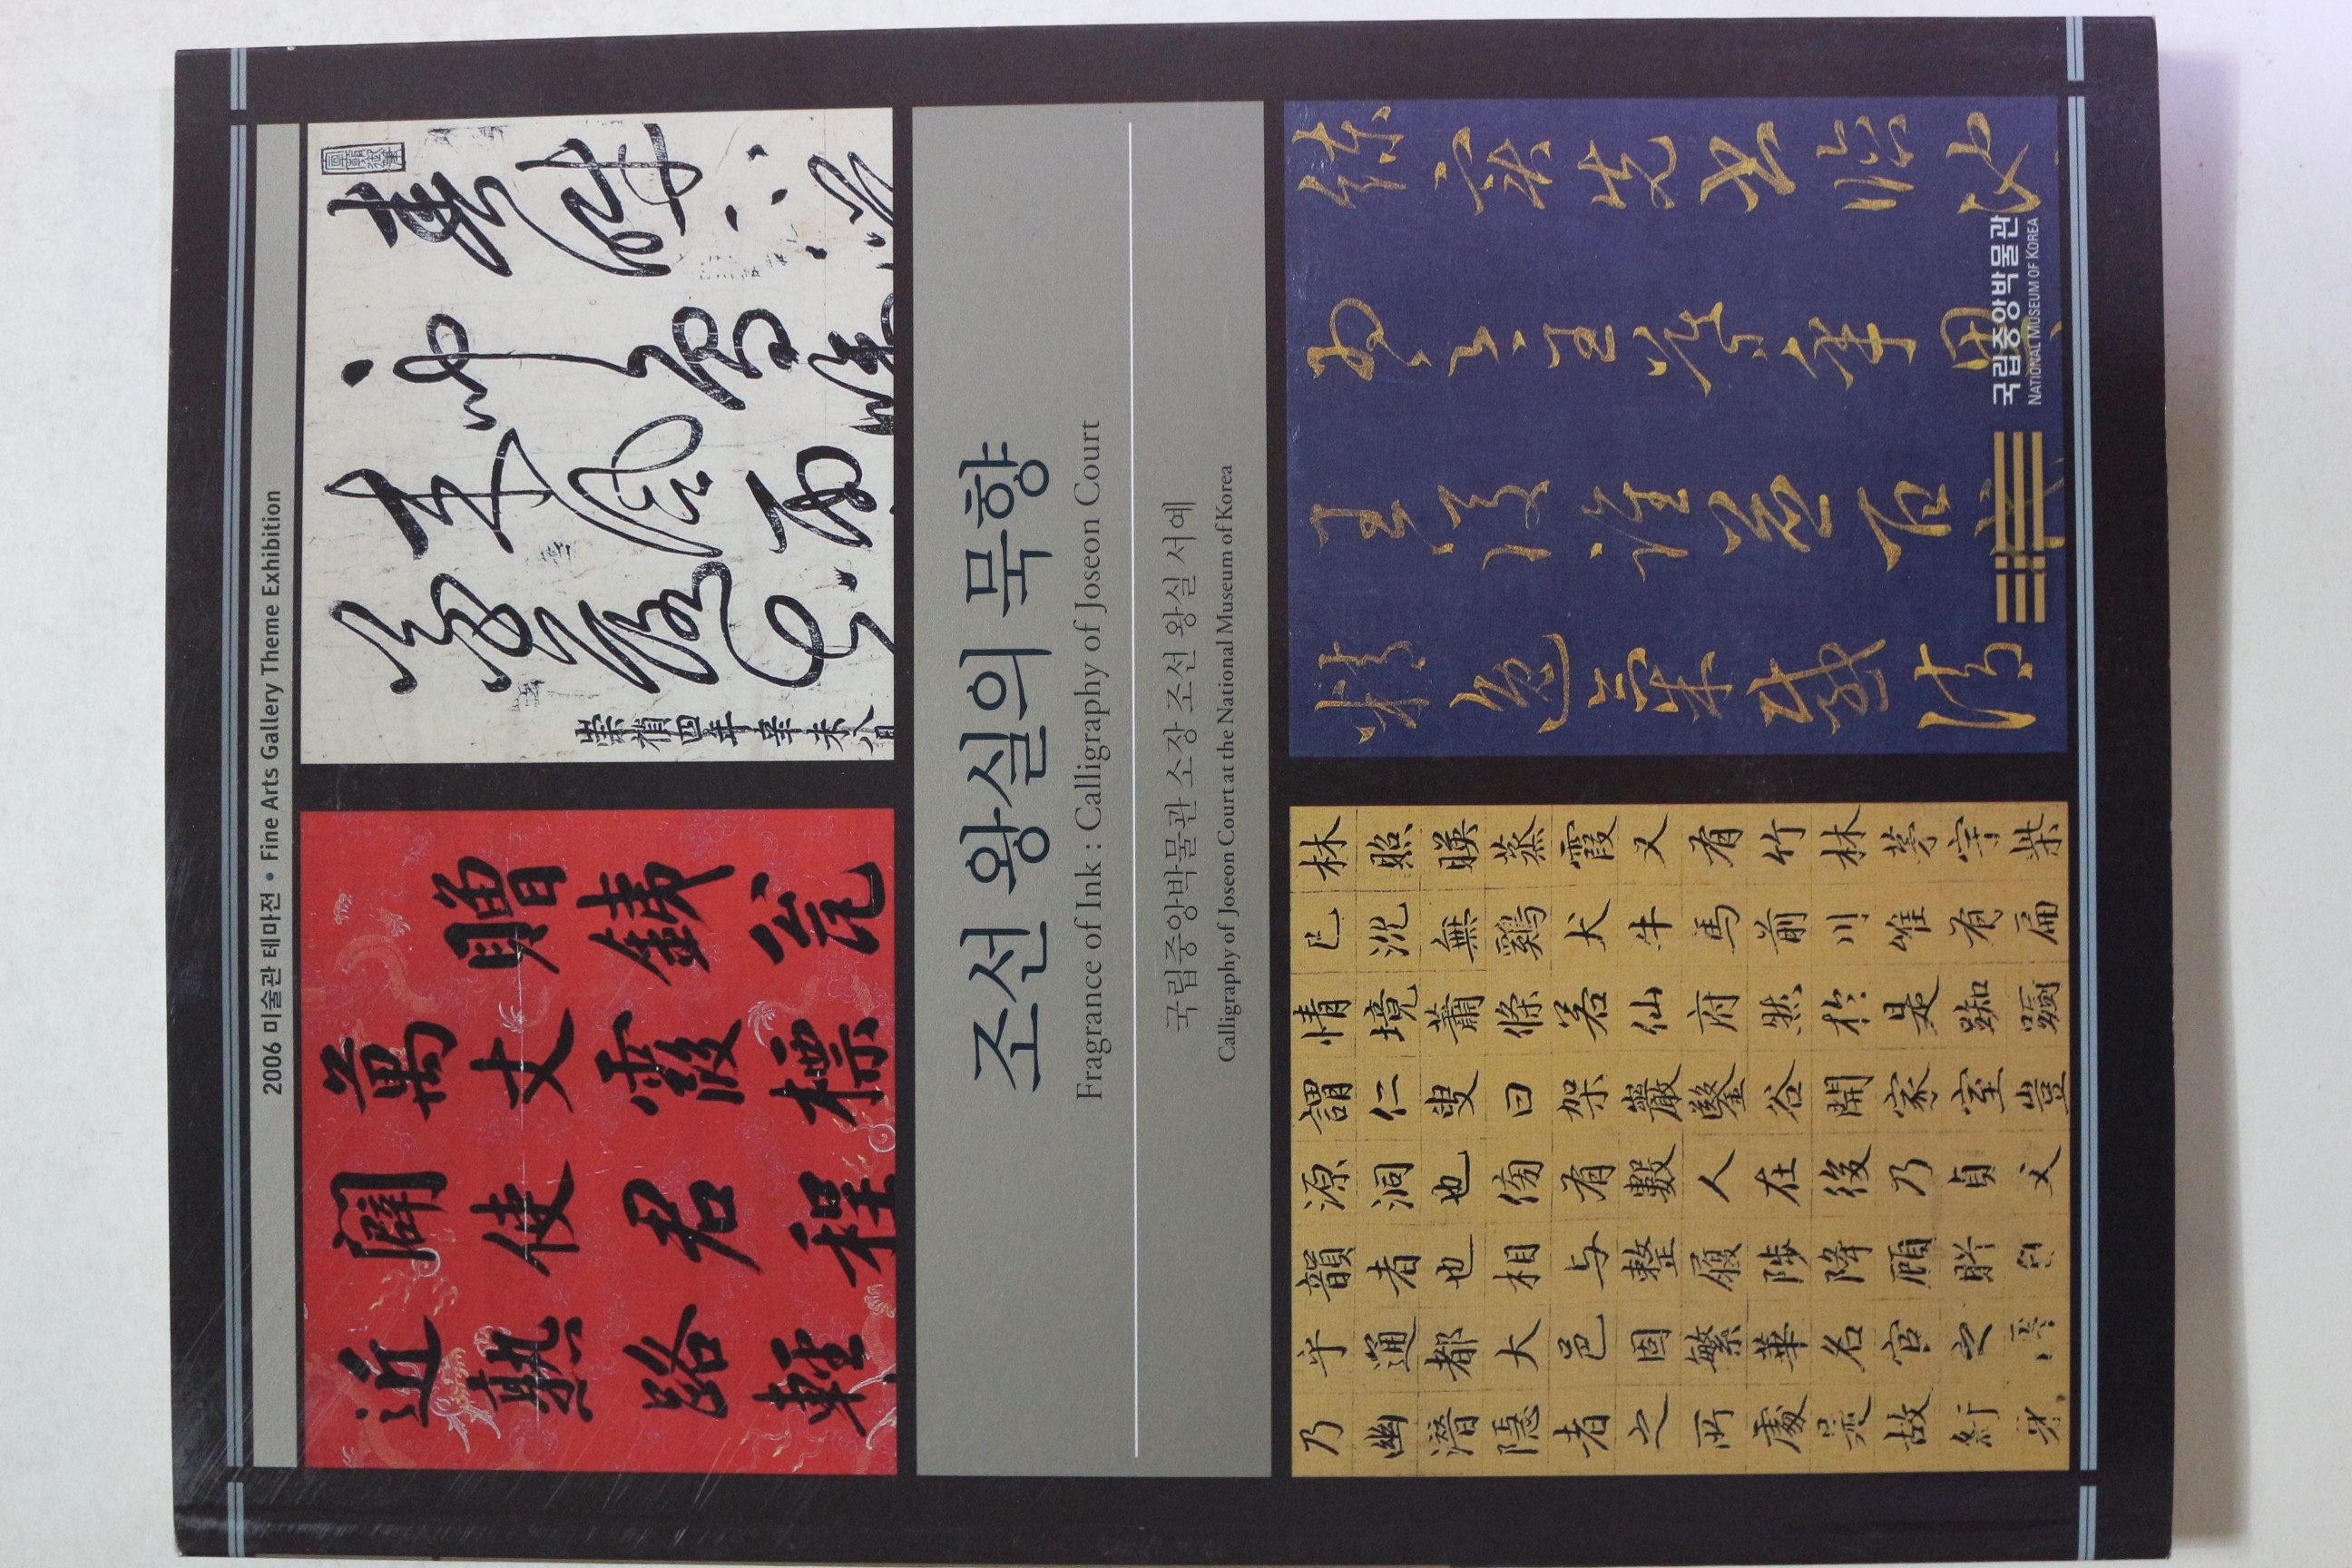 2006 미술관 테마전 • Fine Arts Gallery Theme Exhibition
贈銕瓮
萬丈霞標
闢使君程
近熟路輕
宣廟御筆
春眠不覺
處
來風雨
花落知
崇禎四年辛未八月
조선 왕실의 묵향
Fragrance of Ink : Calligraphy of Joseon Court
국립중앙박물관 소장 조선 왕실 서예
Calligraphy of Joseon Court at the National Museum of Korea
林照暎蒸霞又有竹林茅宇柴
已沈無鷄犬牛馬前川唯有扁
情境蕭條若仙府然於是踟躕
謂仁叟曰架巖鑿谷開家室豈
源洞也傍有數人在後乃貞父
韻者也相与整履陟降顧眄自
乎通都大邑固繁華名宦之
乃幽潛隱者之所處是故紆身
練實先書臨池
王
百
精逸氣盛清
국립중앙박물관
NATIONAL MUSEUM OF KOREA